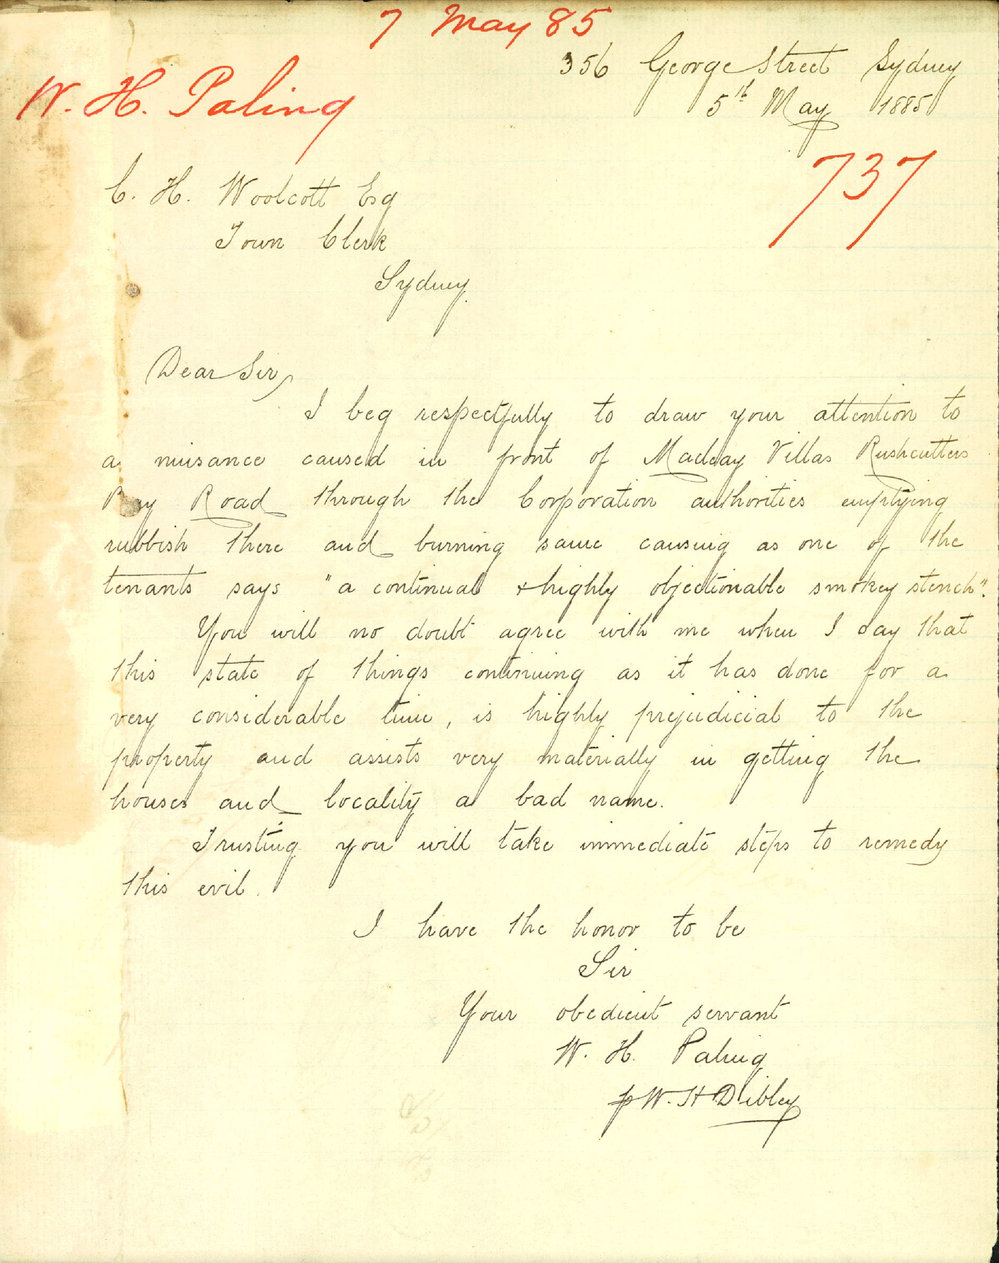 7 May 85
W. H. Paling
356 George Street Sydney
5th May 1885
737
C. H. Woolcott Esq
Town Clerk
Sydney.
Dear Sir,
I beg respectfully to draw your attention to
a nuisance caused in front of Macleay Villas Rushcutters
Bay Road through the Corporation authorities emptying
rubbish there and burning same causing as one of the
tenants says "a continual & highly objectionable smokey stench".
You will no doubt agree with me when I say that
this state of things continuing as it has done for a
very considerable time, is highly prejudicial to the
property and assists very materially in getting the
houses and locality a bad name.
Trusting you will take immediate steps to remedy
this evil.
I have the honor to be
Sir
Your obedient servant
W. H. Paling
p W. H Dibley